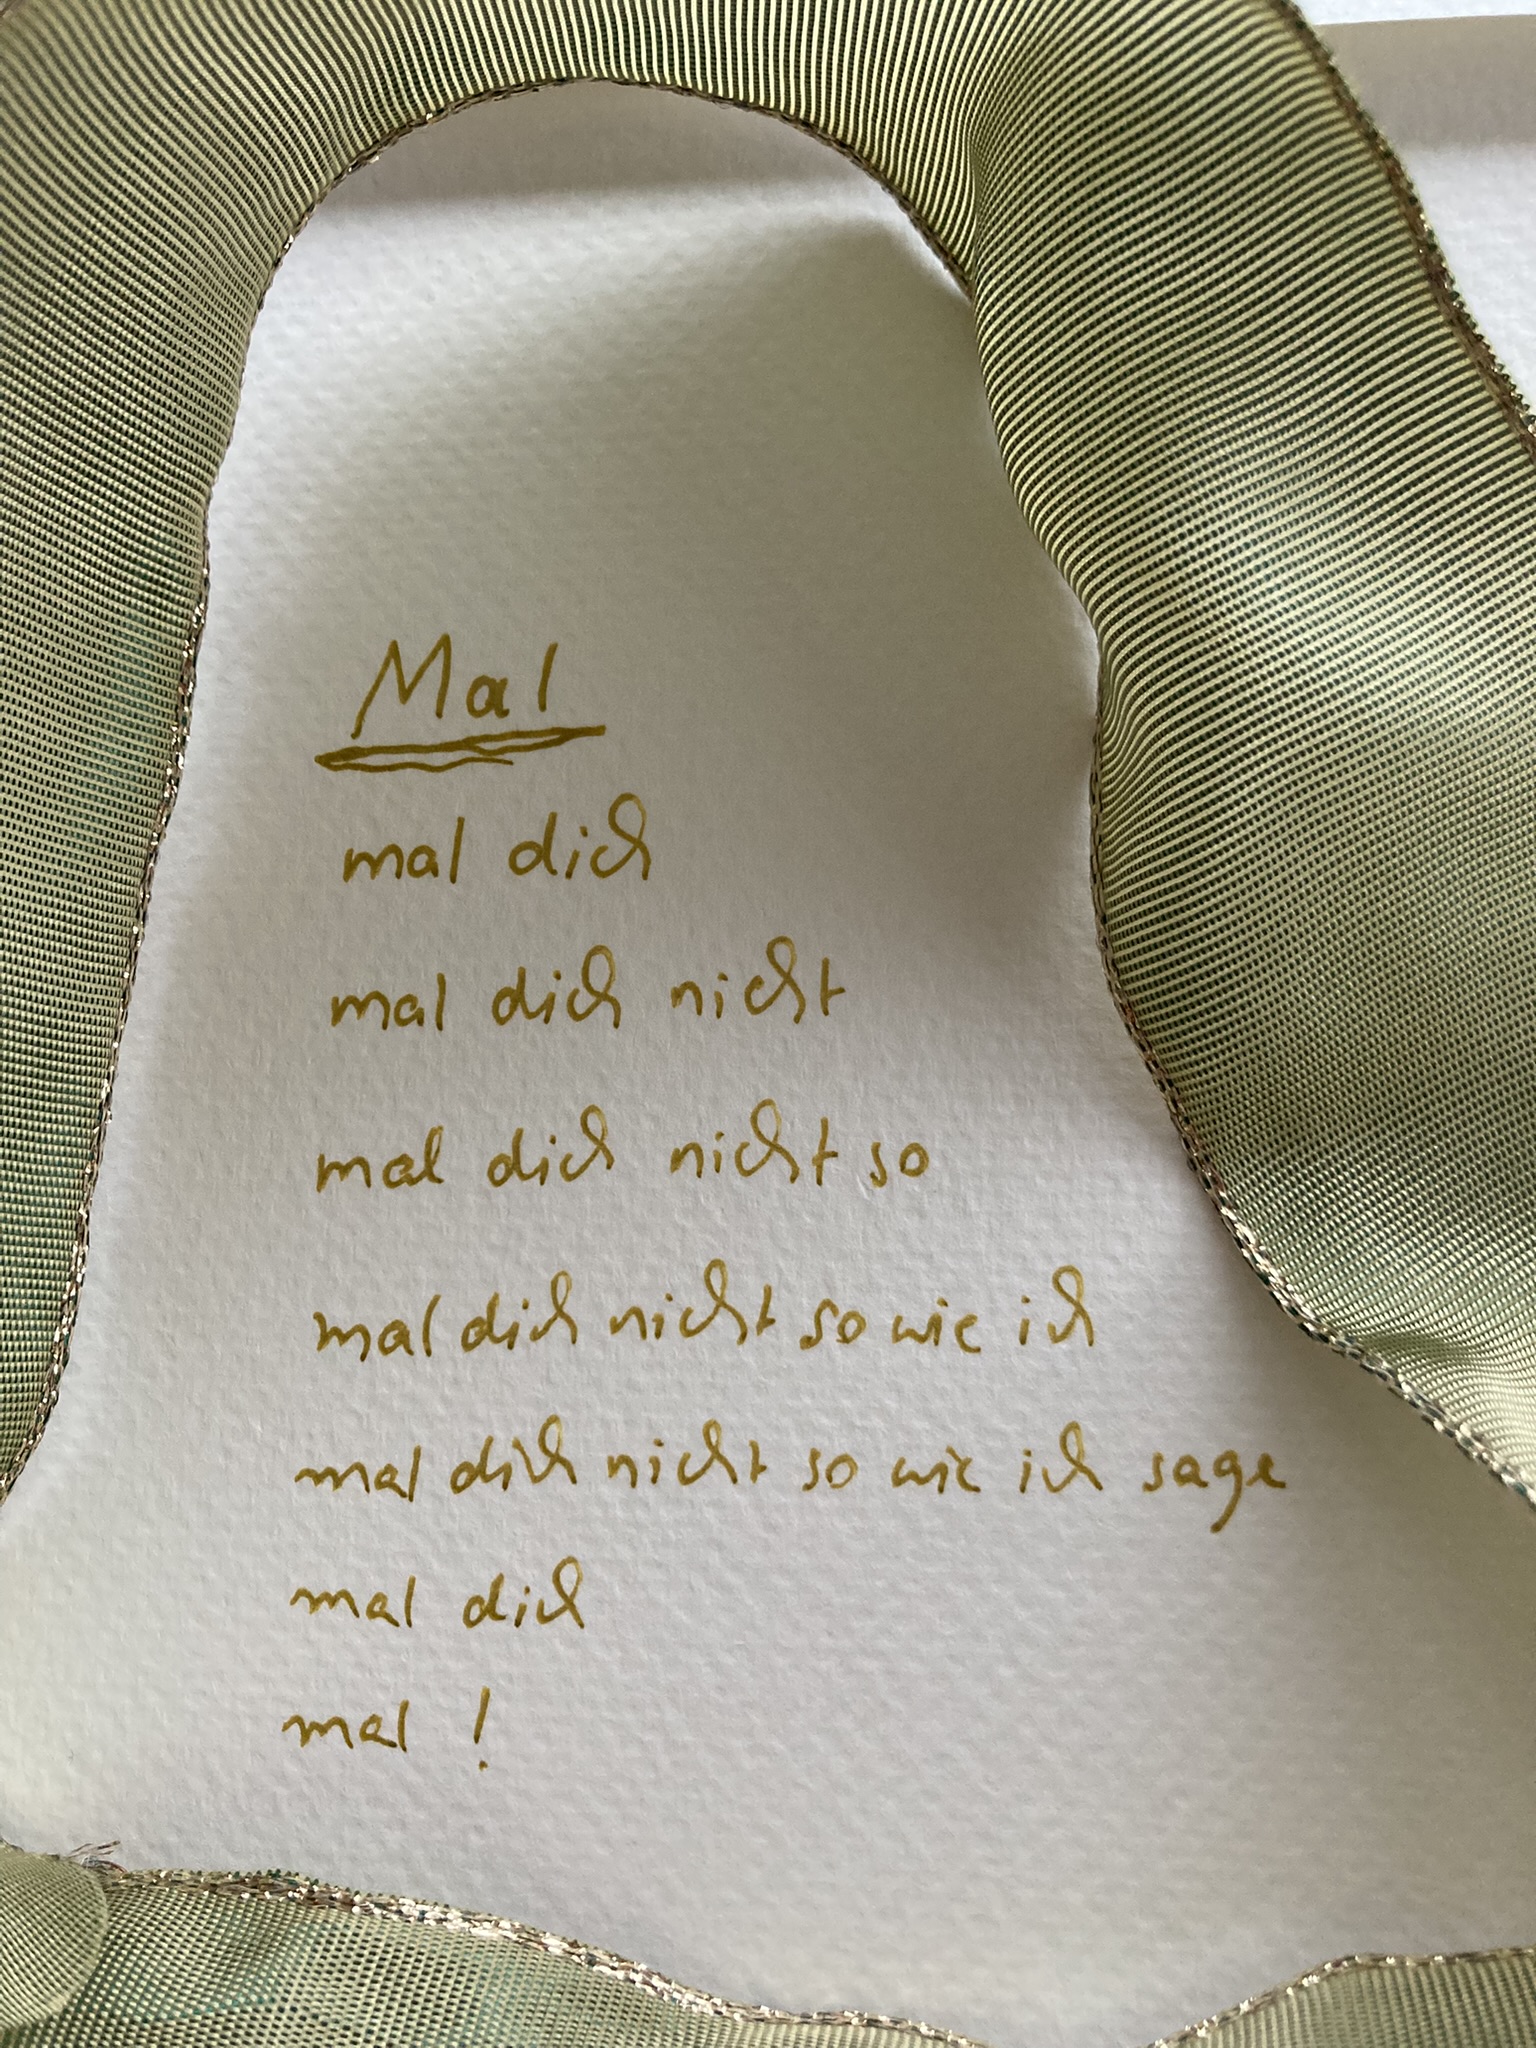 Mal
mal dich
mal dich nicht
mal dich nicht so
mal dich nicht so wie ich
mal dich nicht so wie ich sage
mal dich
mal !